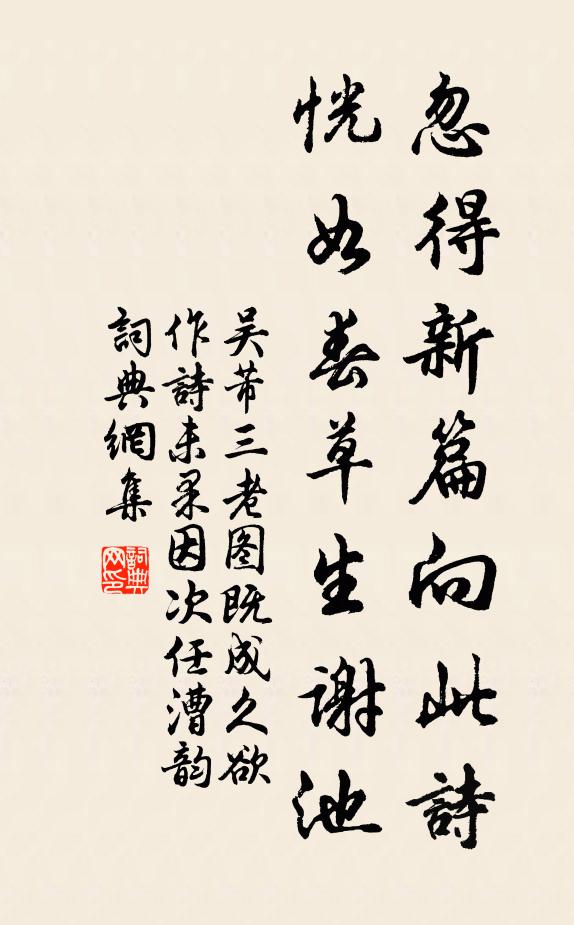 忽得新篇向此詩
恍如春草生謝池
吴芾三老图既成久欲
作詩未果因次任漕韵
詞典網集
詞典网印